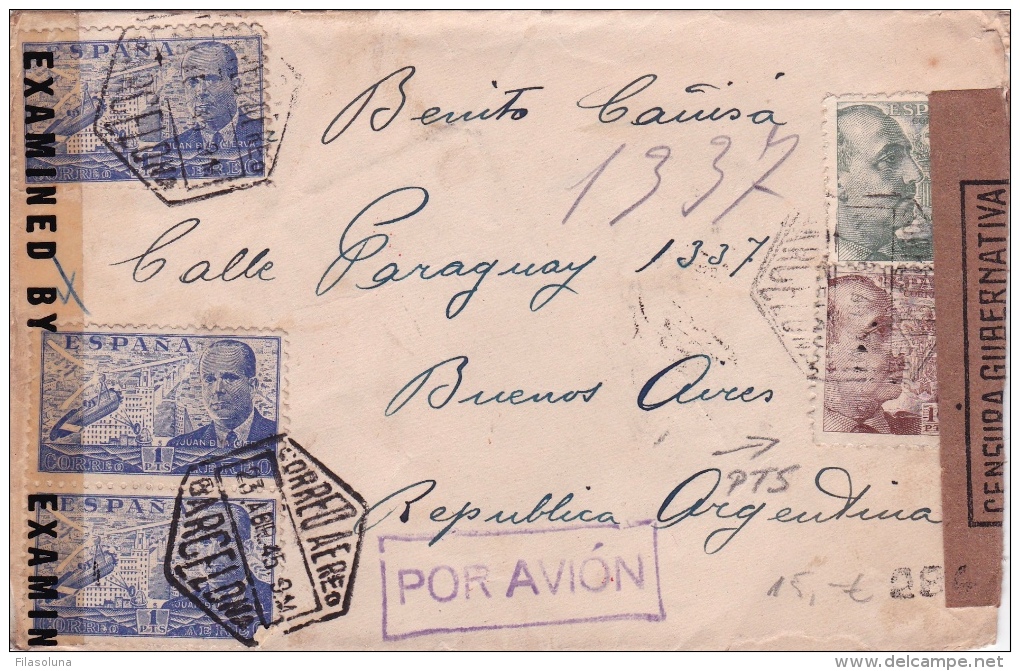 ESPAÑA
CORREO AEREO
JUAN DE LA CIERVA
EXAMINED BY
Benito Cañisá
1337
Calle Paraguay 1337
Buenos Aires
Republica Argentina
ESPAÑA
JUAN DE LA CIERVA
1 PTS
CORREO AEREO
ESPAÑA
1 PTS
CORREO AEREO
EXAMIN
CORREO AEREO
23 ABR. 45
BARCELONA
POR AVIÓN
CENSURA GUBERNATIVA
PTS
15,- €
Filasoluna
delcampe.net